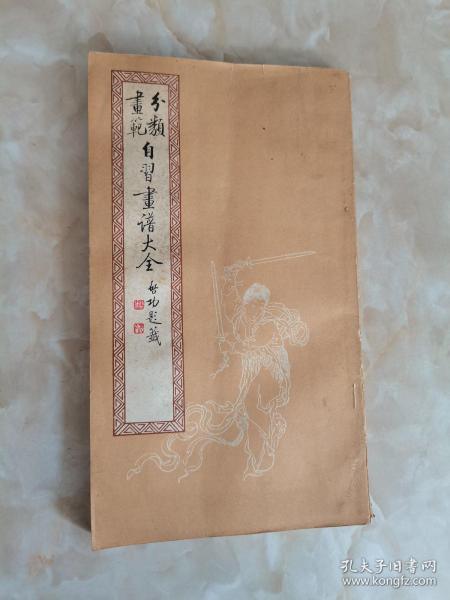 分類
畫範
自習畫譜大全
啓功題籤
孔夫子旧书网
www.kongfz.com